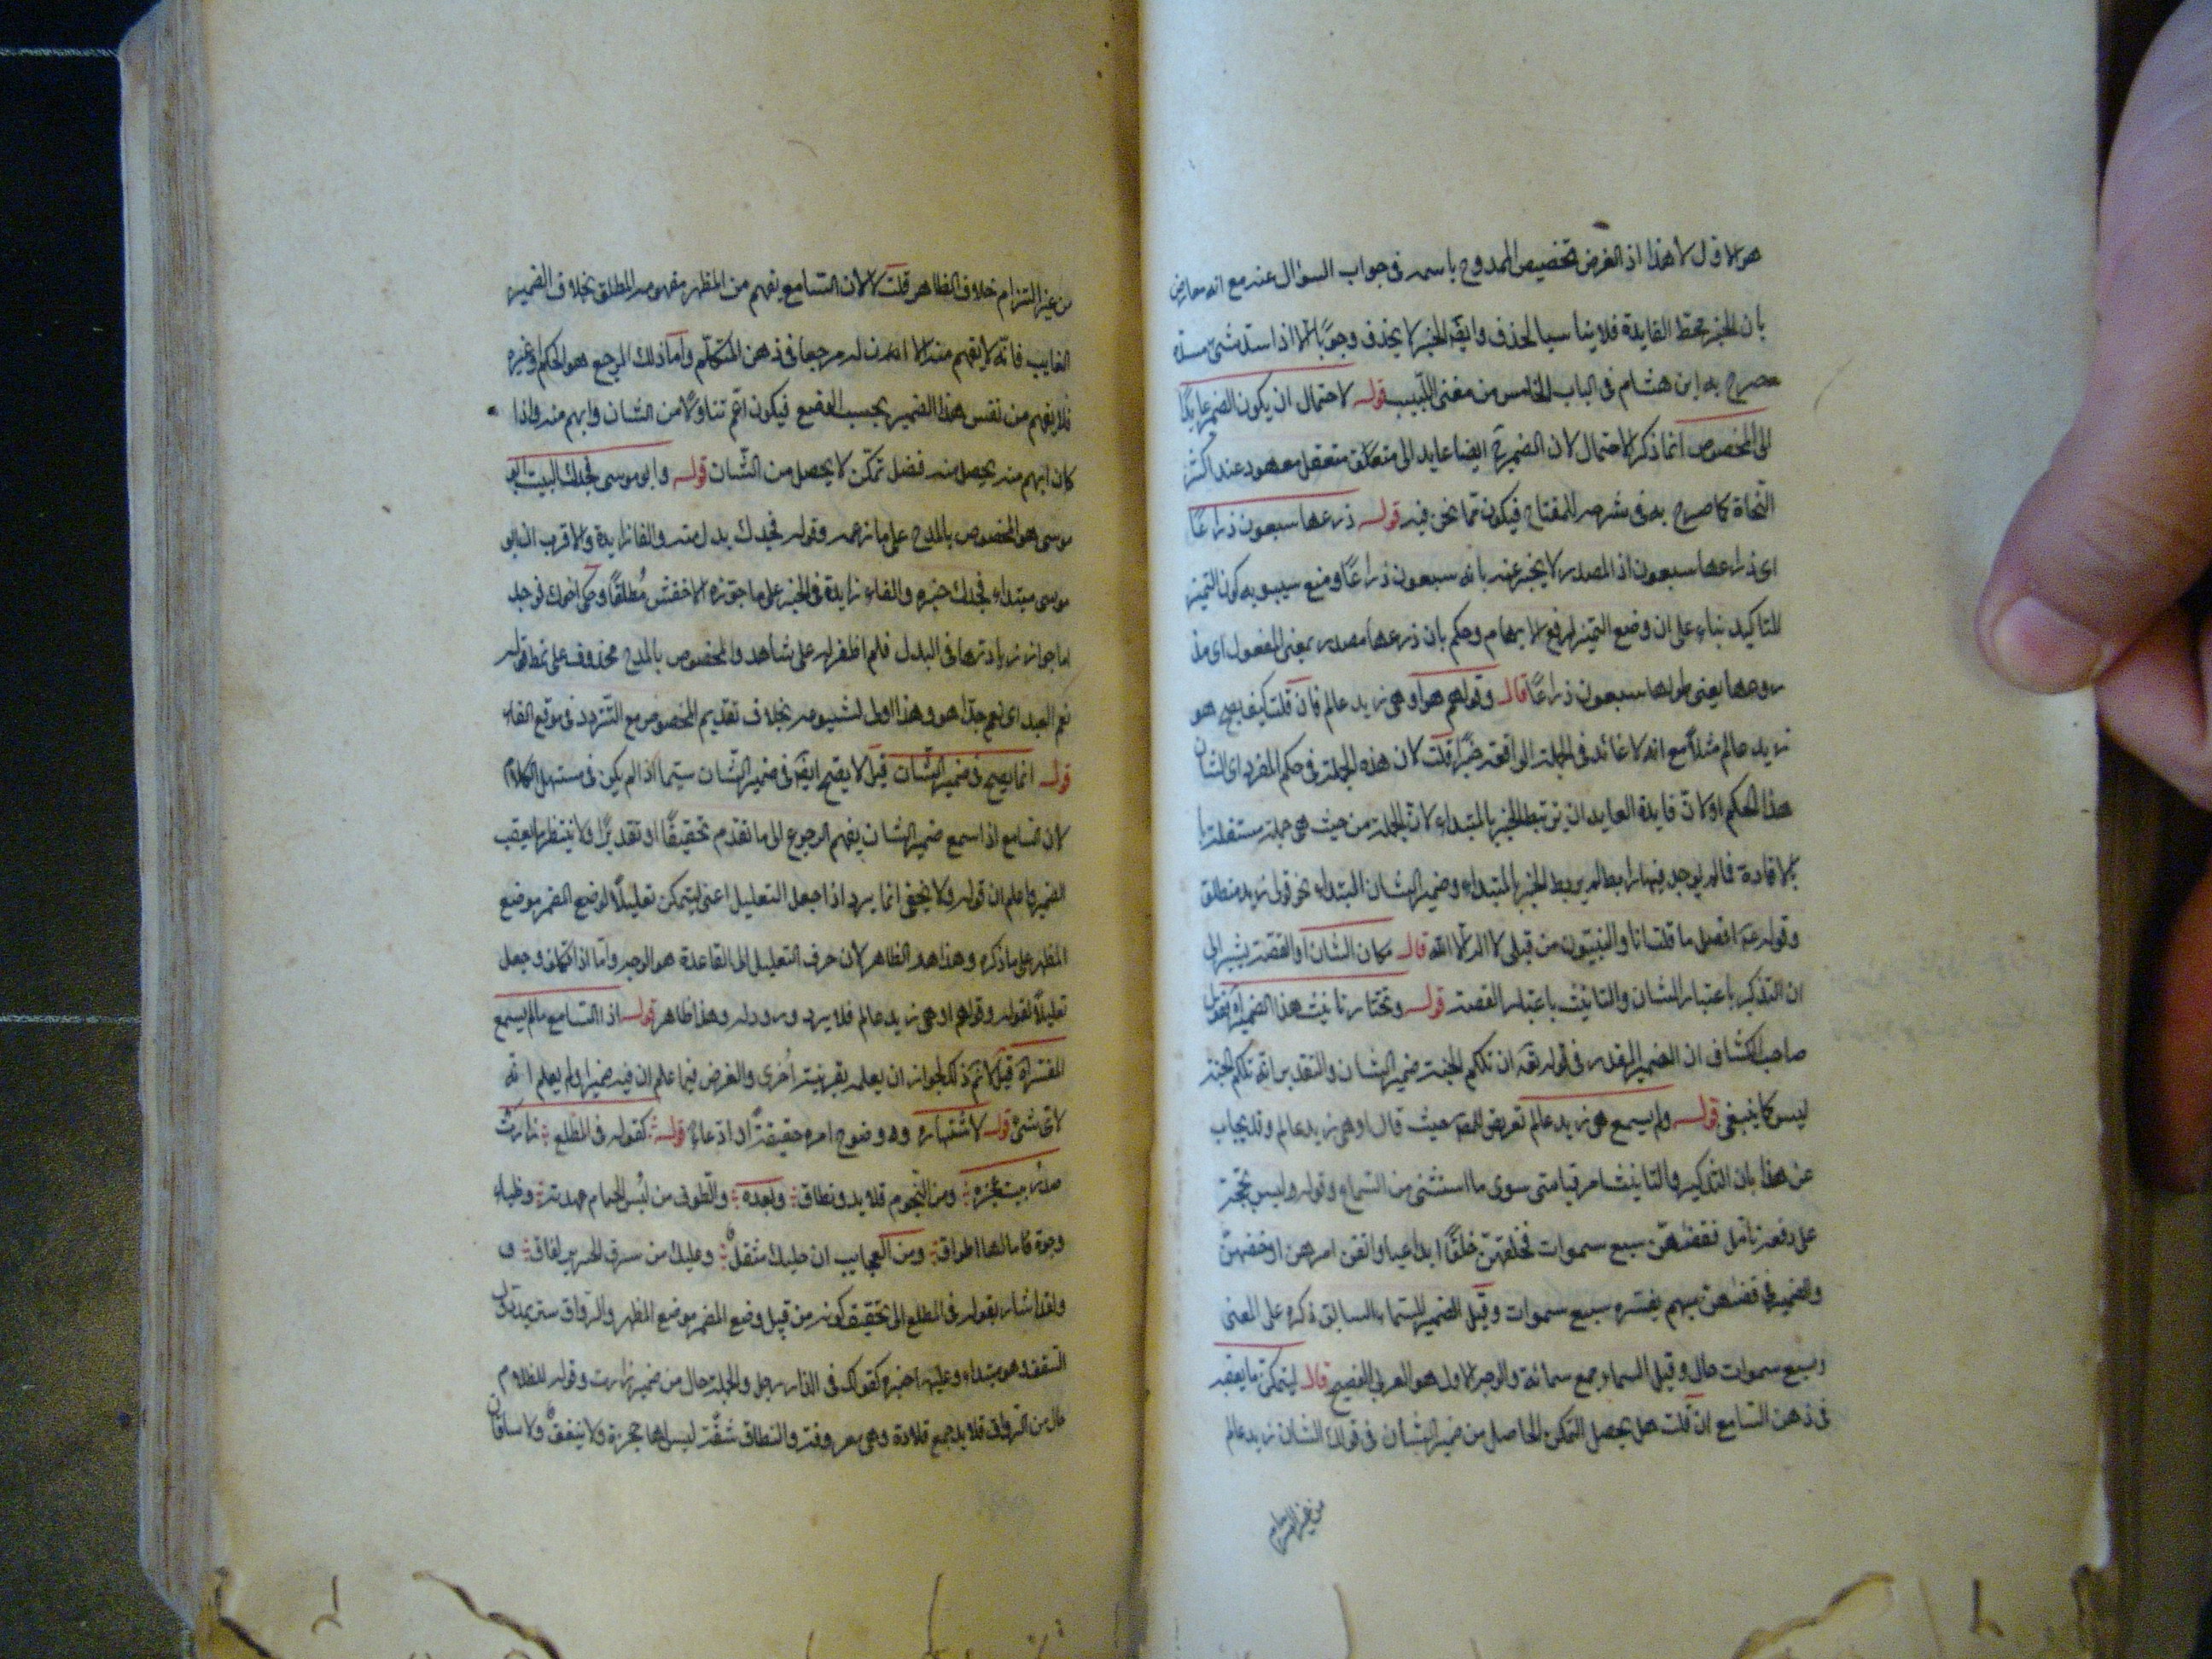 هو الاول لا هذا اذ الغرض تخصيص الممدوح باسمه فى جواب السؤال عنه مع انه معارض
بان الخبر محط الفايدة فلا يناسبه الحذف وايضا الخبر لا يحذف وجوبًا الا اذا سد شئ مسدّه
صرح به ابن هشام فى الباب الخامس من مغنى اللبيب قوله لاحتمال ان يكون الضمير عايدًا
الى المخصوص انما ذكر الاحتمال لان الضمير ح ايضا عايد الى متعقل معهود عند اكثر
النّحاة كما صرح به فى شرحه للمفتاح فيكون مما نحن فيه قوله ذرعها سبعون ذراعًا
اى ذراعها سبعون اذ المصدر لا يخبر عنه بانه سبعون ذراعًا ومنع سيبويه كون التميز
للتاكيد بناء على ان وضع التميز لرفع الابهام وحكم بان ذرعها مصدر بمعنى المفعول اى مذ
روعها يعنى طولها سبعون ذراعًا قال وقولهم هو او هى زيد عالم فان قلت كيف يصح هو
زيد عالم مثلًا مع انه لا عائد فى الجملة الواقعة خبرًا قلت لان هذه الجملة فى حكم المفرد اى الشان
هذا الحكم او لانّ فايدة العايد ان يرتبط الخبر بالمبتداء لانّ الجملة من حيث هى جملة مستقلة
بالافادة فما لم يوجد فيها رابط لم يرتبط الخبر بالمبتداء وضمير الشان المبتداء نحو قولى زيد منطلق
وقوله عم افضل ما قلت انا والنبيّون من قبلى لا اله الا الله قال مكان الشان او القصة يشير الى
ان التذكير باعتبار الشان والتانيث باعتبار القصة قوله وتختار تانيث هذا الضمير
صاحب الكشاف ان الضمير المقدر فى قوله تعه ان تلكم الجنة ضمير الشان والتقدير انه تلكم الجنة
ليس كما ينبغى قوله ولم يسمع هى زيد عالم تعريض للمص حيث قال او هى زيد عالم وقد يجاب
عن هذا بان التذكير والتانيث امر قياسى سوى ما استثنى من السماع وقوله وليس بحجة
على دفعه تامل فقضٰهنّ سبع سموات فخلقهنّ خلقًا ابداعيا واتقن امرهن
والضمير فى قضٰهن مبهم يفسره سبع سموات وقيل الضمير للسماء السابق ذكره على المعنى
وسبع سموات حال وقيل السماء جمع سمائة والوجه الاول هو العربى الفصيح قال ليتمكن ما يعقبه
فى ذهن السامع ان قلت هل يحصل التمكن الحاصل من ضمير الشان فى قولك الشان زيد عالم
من غير التزام
من غير التزام خلاف الظاهر قلت لا لان السامع يفهم من المظهر مفهومه المطلق بخلاف الضمير
الغايب فانّه لا يفهم منه الا ان له مرجعا فى ذهن المتكلّم وامّا ذلك المرجع هو الحكم او غيره
فلا يفهم من نفس هذا الضمير بحسب الوضع فيكون اتمّ تناولًا من الشان وابهم منه واذا
كان ابهم منه يحصل منه فضل تمكّن لا يحصل من الشّان قوله وابو موسى فجدك البيت ابو
موسى هو المخصوص بالمدح على ما زعمه وقوله فجدك بدل منه والفا زايدة والاقرب ان ابو
موسى مبتداء فجدك خبره والفاء زايدة فى الخبر على ما جوّزه الاخفش مُطلقًا وحكى اخوك فوجد
اما جواز زيادتها فى البدل فلم اظفر له على شاهد والمخصوص بالمدح محذوف على نمط قوله
نعم العبد اى نعم جدّا هو وهذا اولى لشيوعه بخلاف تقديم المخصوص مع التردد فى موقع الفاء
قوله انما يصح فى ضمير الشّان قيل لا يصح ايضا فى ضمير الشّان سيّما اذا لم يكن فى مستهل الكلام
لان السامع اذا سمع ضمير الشان يفهم الرجوع الى ما تقدم تحقيقًا او تقديرًا ولا ينتظر ما يعقب
الضمير واعلم ان قوله ولا يخفى انما يرد اذا جعل التعليل اعنى ليتمكن تعليلًا لوضع المضمر موضع
المظهر على ما ذكره وهذا هو الظاهر لان صرف التعليل الى القاعدة هو الوجه وامّا اذا تكلف وجعل
تعليلًا لقوله وقولهم هو او هى زيد عالم فلا يرد وروده وهذا ظاهر قوله اذ السامع ما لم يسمع
المفسّر آه قيل لا تم ذلك لجواز ان يعلمه بقرينة اُخرى والغرض فيما علم ان فيه ضميرا ولم يعلم انّه
لاى شئ قوله لاشتهاره ووضوح امره حقيقةً او ادّعاءً قوله كقوله فى المطلع زارتْ
صدره ومن النّجوم قلايد ونطاق وبعده والطوق من لُبس الحمام عهدته وظباء
وجرة ما لها اطواق ومن العجايب ان حليك مثقلٌ وعليك من سرق الحرير لفاق
ولقد اشار بقوله فى المطلع الى تحقيق كونه من قبيل وضع المضمر موضع المظهر والرواق ستر يمد دون
السقف وهو مبتداء وعليها خبره كقولك فى الدار رجل والجملة حال من ضمير زارت وقوله للظلام
حال من الرواق قلايد جمع قلادة وهى معروفة والنطاق شقّة ليس لها حجزة ولا نيفق ولا ساقان